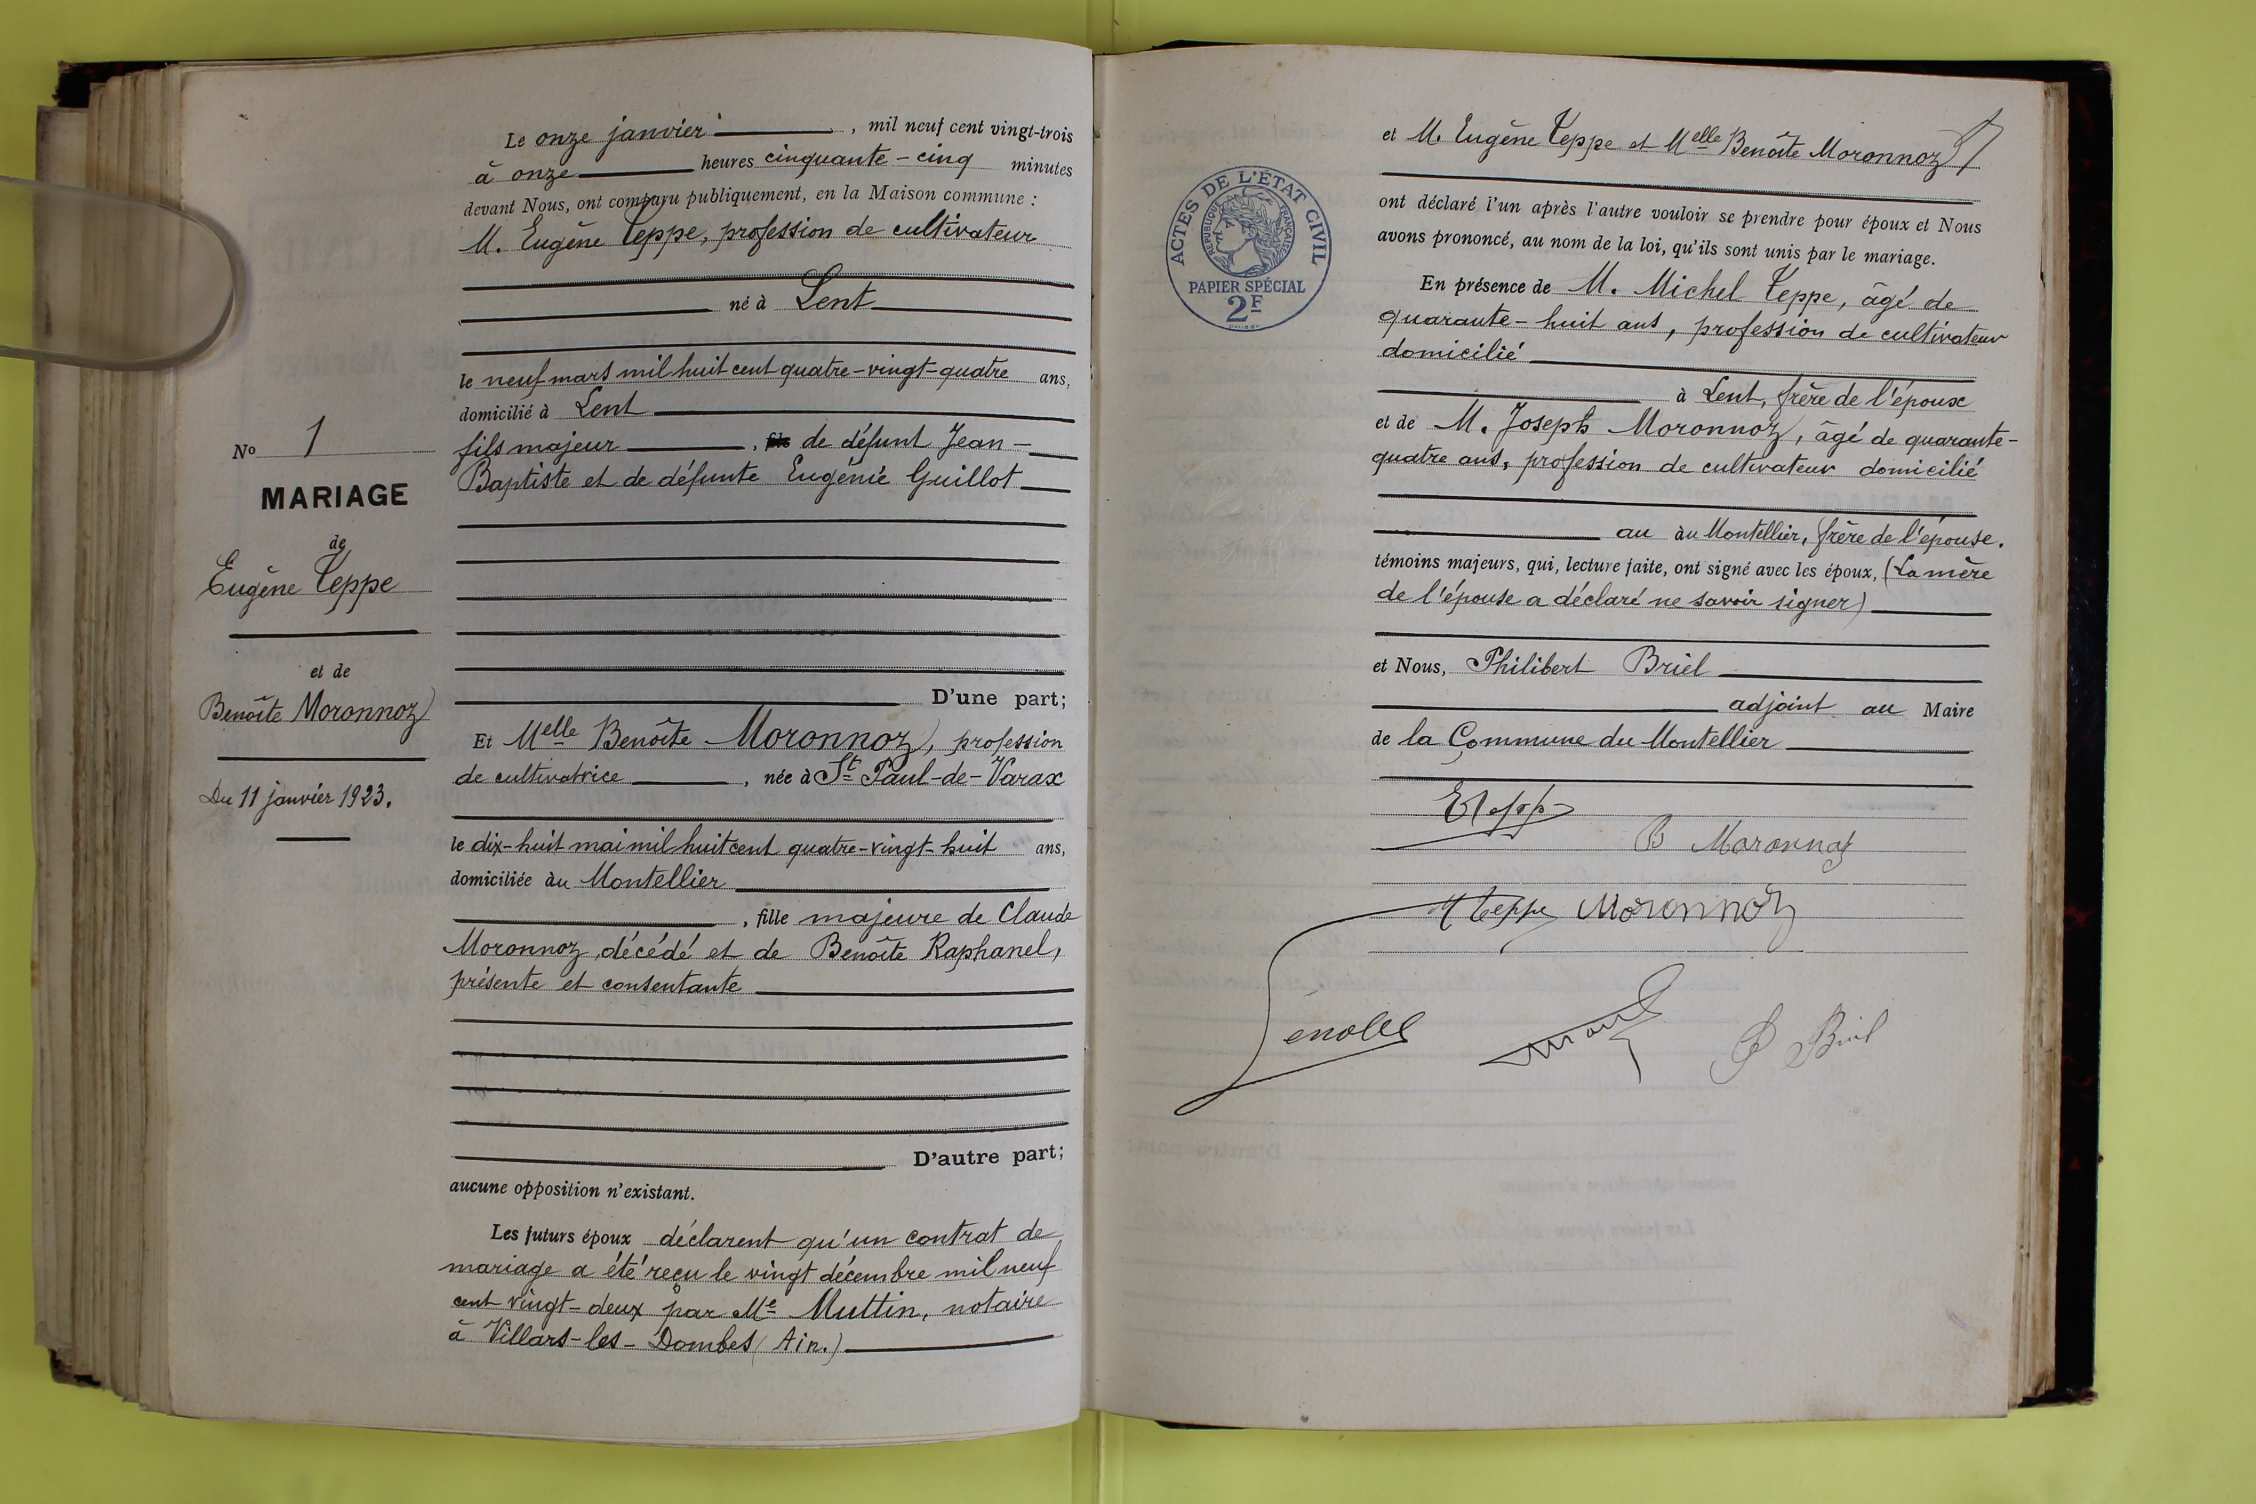 Le onze janvier, mil neuf cent vingt-trois
à onze heures cinquante-cinq minutes
devant Nous, ont comparu publiquement, en la Maison commune :
M. Eugène Teppe, profession de cultivateur
né à Lent
le neuf mars mil huit cent quatre-vingt-quatre ans,
domicilié à Lent
fils majeur, fils de défunt Jean-
Baptiste et de défunte Eugénie Guillot
No 1
MARIAGE
de
Eugène Teppe
et de
Benoîte Moronnoz
Du 11 janvier 1923.
D'une part;
Et Melle Benoîte Moronnoz, profession
de cultivatrice, née à St Paul-de-Varax
le dix-huit mai mil huit cent quatre-vingt-huit ans,
domiciliée au Montellier
, fille majeure de Claude
Moronnoz, décédé et de Benoîte Raphanel,
présente et consentante
D'autre part;
aucune opposition n'existant.
Les futurs époux déclarent qu'un contrat de
mariage a été reçu le vingt décembre mil neuf
cent vingt-deux par Me Muttin, notaire
à Villars-les-Dombes (Ain.)
et M. Eugène Teppe et Melle Benoîte Moronnoz
ont déclaré l'un après l'autre vouloir se prendre pour époux et Nous
avons prononcé, au nom de la loi, qu'ils sont unis par le mariage.
ACTES DE L'ÉTAT CIVIL
RÉPUBLIQUE FRANÇAISE
PAPIER SPÉCIAL
2F
En présence de M. Michel Teppe, âgé de
quarante-huit ans, profession de cultivateur
domicilié
à Lent, frère de l'époux
et de M. Joseph Moronnoz, âgé de quarante-
quatre ans, profession de cultivateur domicilié
au au Montellier, frère de l'épouse.
témoins majeurs, qui, lecture faite, ont signé avec les époux, (La mère
de l'épouse a déclaré ne savoir signer)
et Nous, Philibert Briel
adjoint au Maire
de la Commune du Montellier
B Moronnoz
M Teppe Moronnoz
P Briel